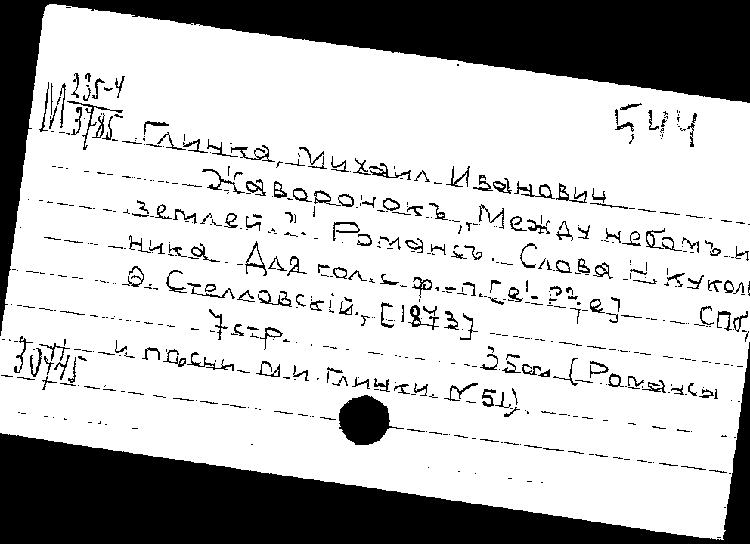 М 235-4
3785
544
Глинка, Михаил Иванович
Жаворонокъ, „Между небомъ и
землей..". Романсъ. Слова Н. Куколь
ника Для гол. с ф.-п. [e¹- e] СПб,
Ѳ. Стелловскій, [1873]
7 стр. 35см (Романсы
и пѣсни М.И. Глинки. № 51).
30445